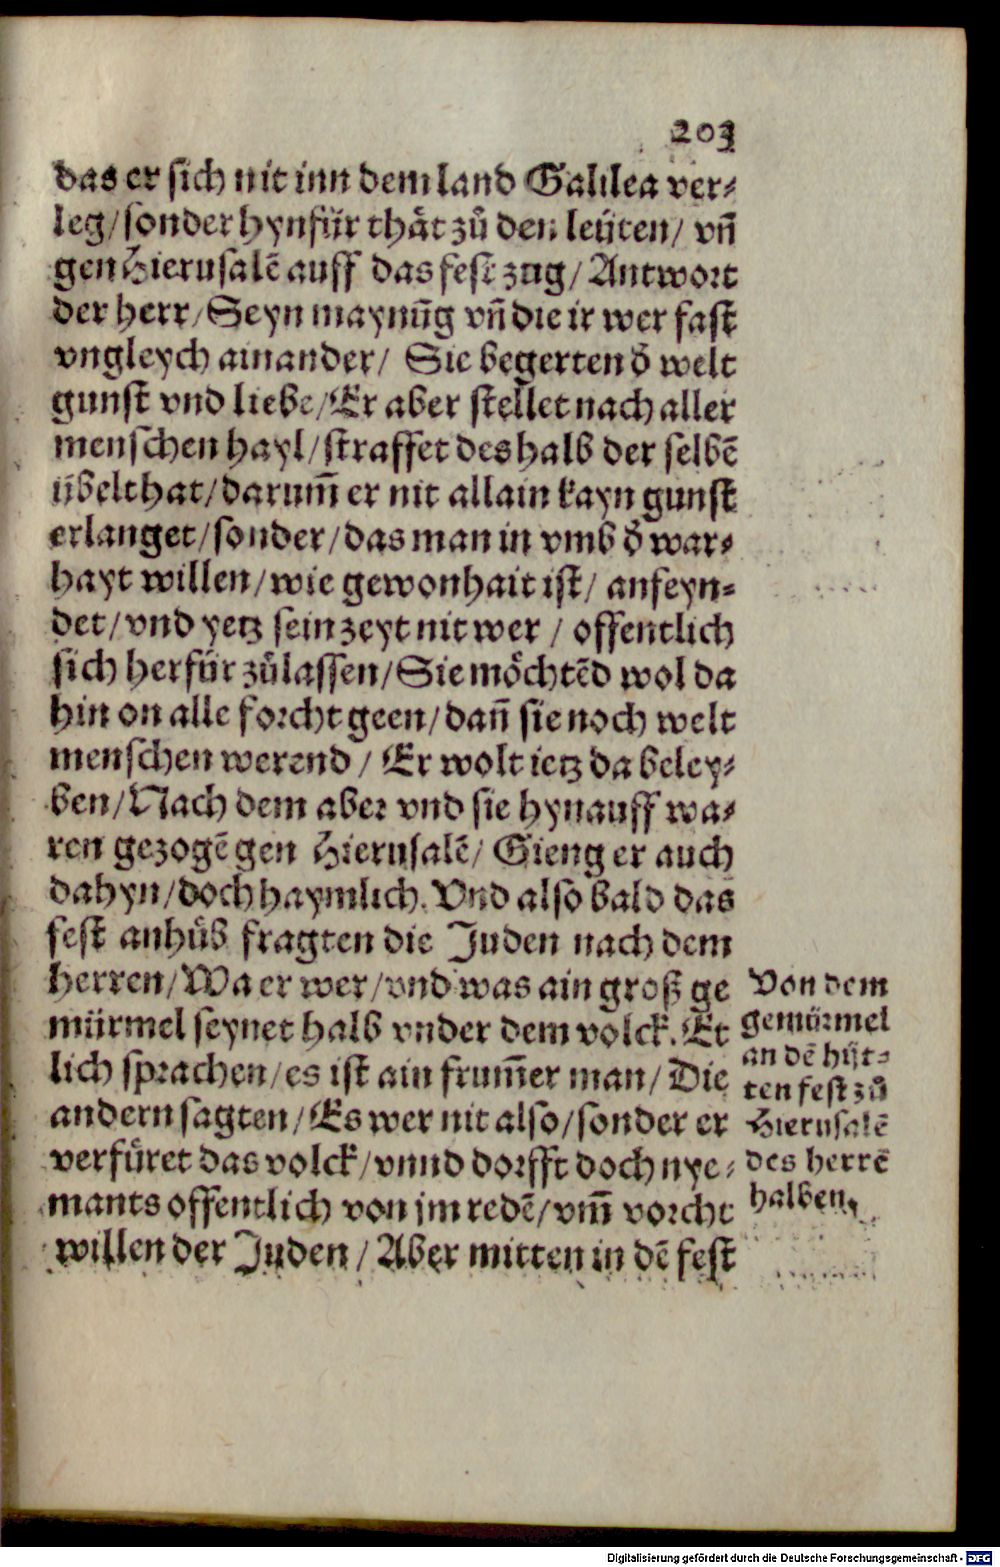 203
das er sich nit inn dem land Galilea ver⸗
leg/sonder hynfür thåt zů den leüten/ vñ
gen Hierusalē auff das fest zug/Antwort
der herr/Seyn maynūg vñ die ir wer fast
vngleych ainander/ Sie begerten d̄ welt
gunst vnd liebe/Er aber stellet nach aller
menschen hayl/straffet des halb der selbē
übelthat/darum̄ er nit allain kayn gunst
erlanget/sonder/das man in vmb d̄ war⸗
hayt willen/wie gewonhait ist/ anfeyn⸗
det/vnd yetz sein zeyt nit wer / offentlich
sich herfür zůlassen/Sie möchtēd wol da
hin on alle forcht geen/dañ sie noch welt
menschen werend / Er wolt ietz da beley⸗
ben/Nach dem aber vnd sie hynauff wa⸗
ren gezogē gen Hierusalē/ Gieng er auch
dahyn/doch haymlich. Vnd also bald das
fest anhůb fragten die Juden nach dem
herren/Wa er wer/vnd was ain groß ge
mürmel seynet halb vnder dem volck. Et
lich sprachen/es ist ain frum̄er man/ Die
andern sagten/Es wer nit also/sonder er
verfüret das volck/vnnd dorfft doch nye⸗
mants offentlich von jm redē/vm̄ vorcht
willen der Juden / Aber mitten in dē fest
Von dem
gemürmel
an dē hüt⸗
ten fest zů
Hierusalē
des herrē
halben.
Digitalisierung gefördert durch die Deutsche Forschungsgemeinschaft - DFG